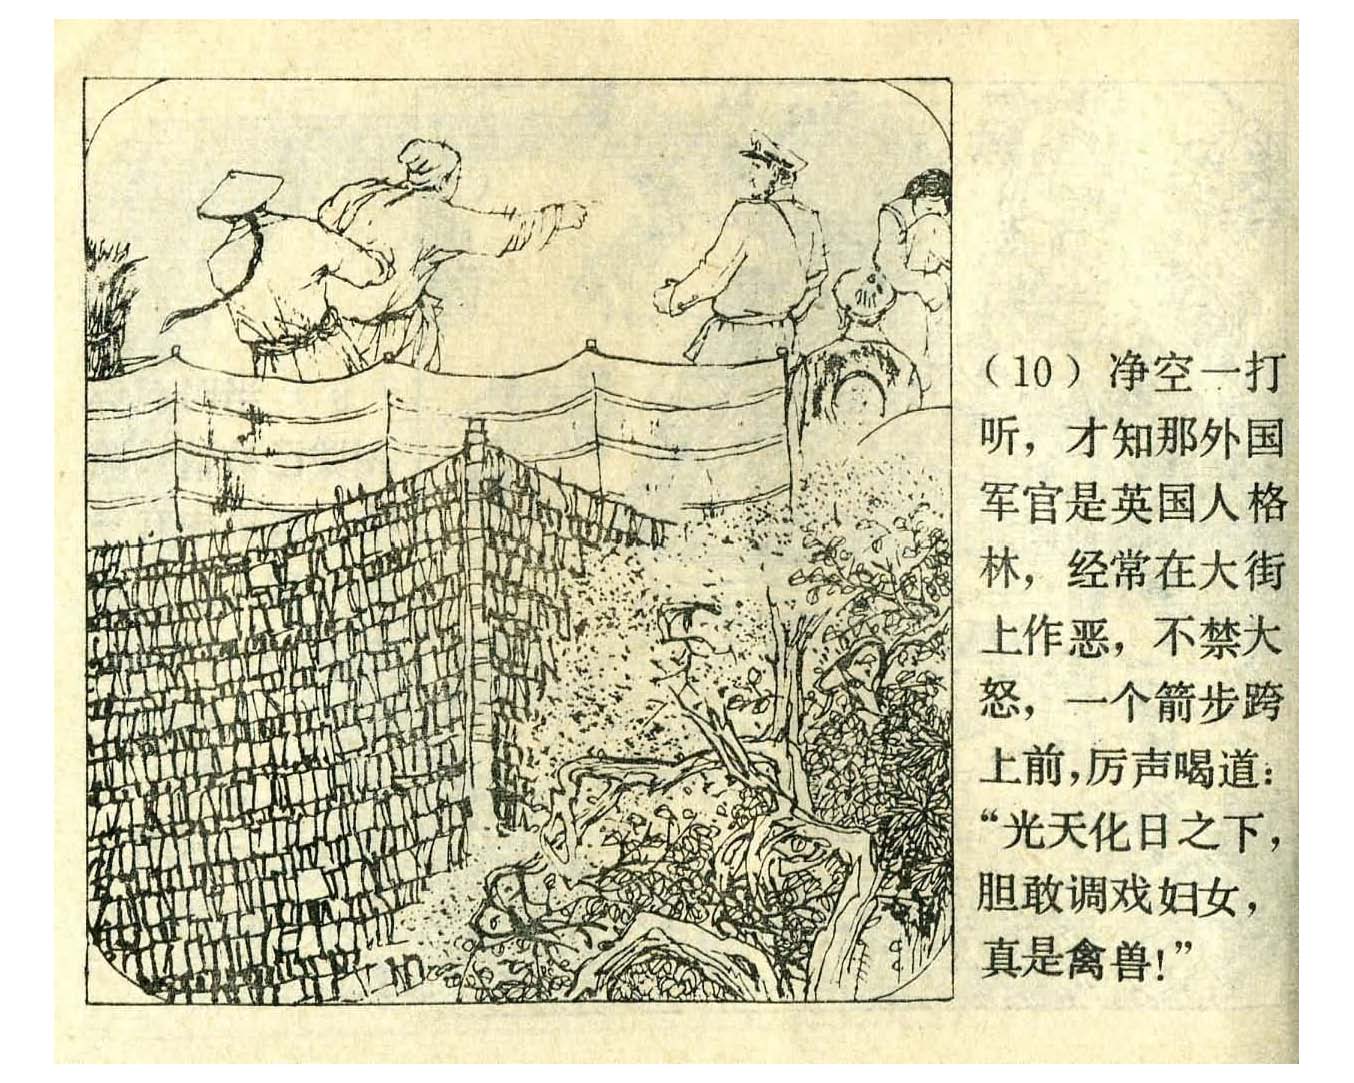 （10）净空一打
听，才知那外国
军官是英国人格
林，经常在大街
上作恶，不禁大
怒，一个箭步跨
上前，厉声喝道：
“光天化日之下，
胆敢调戏妇女，
真是禽兽！”